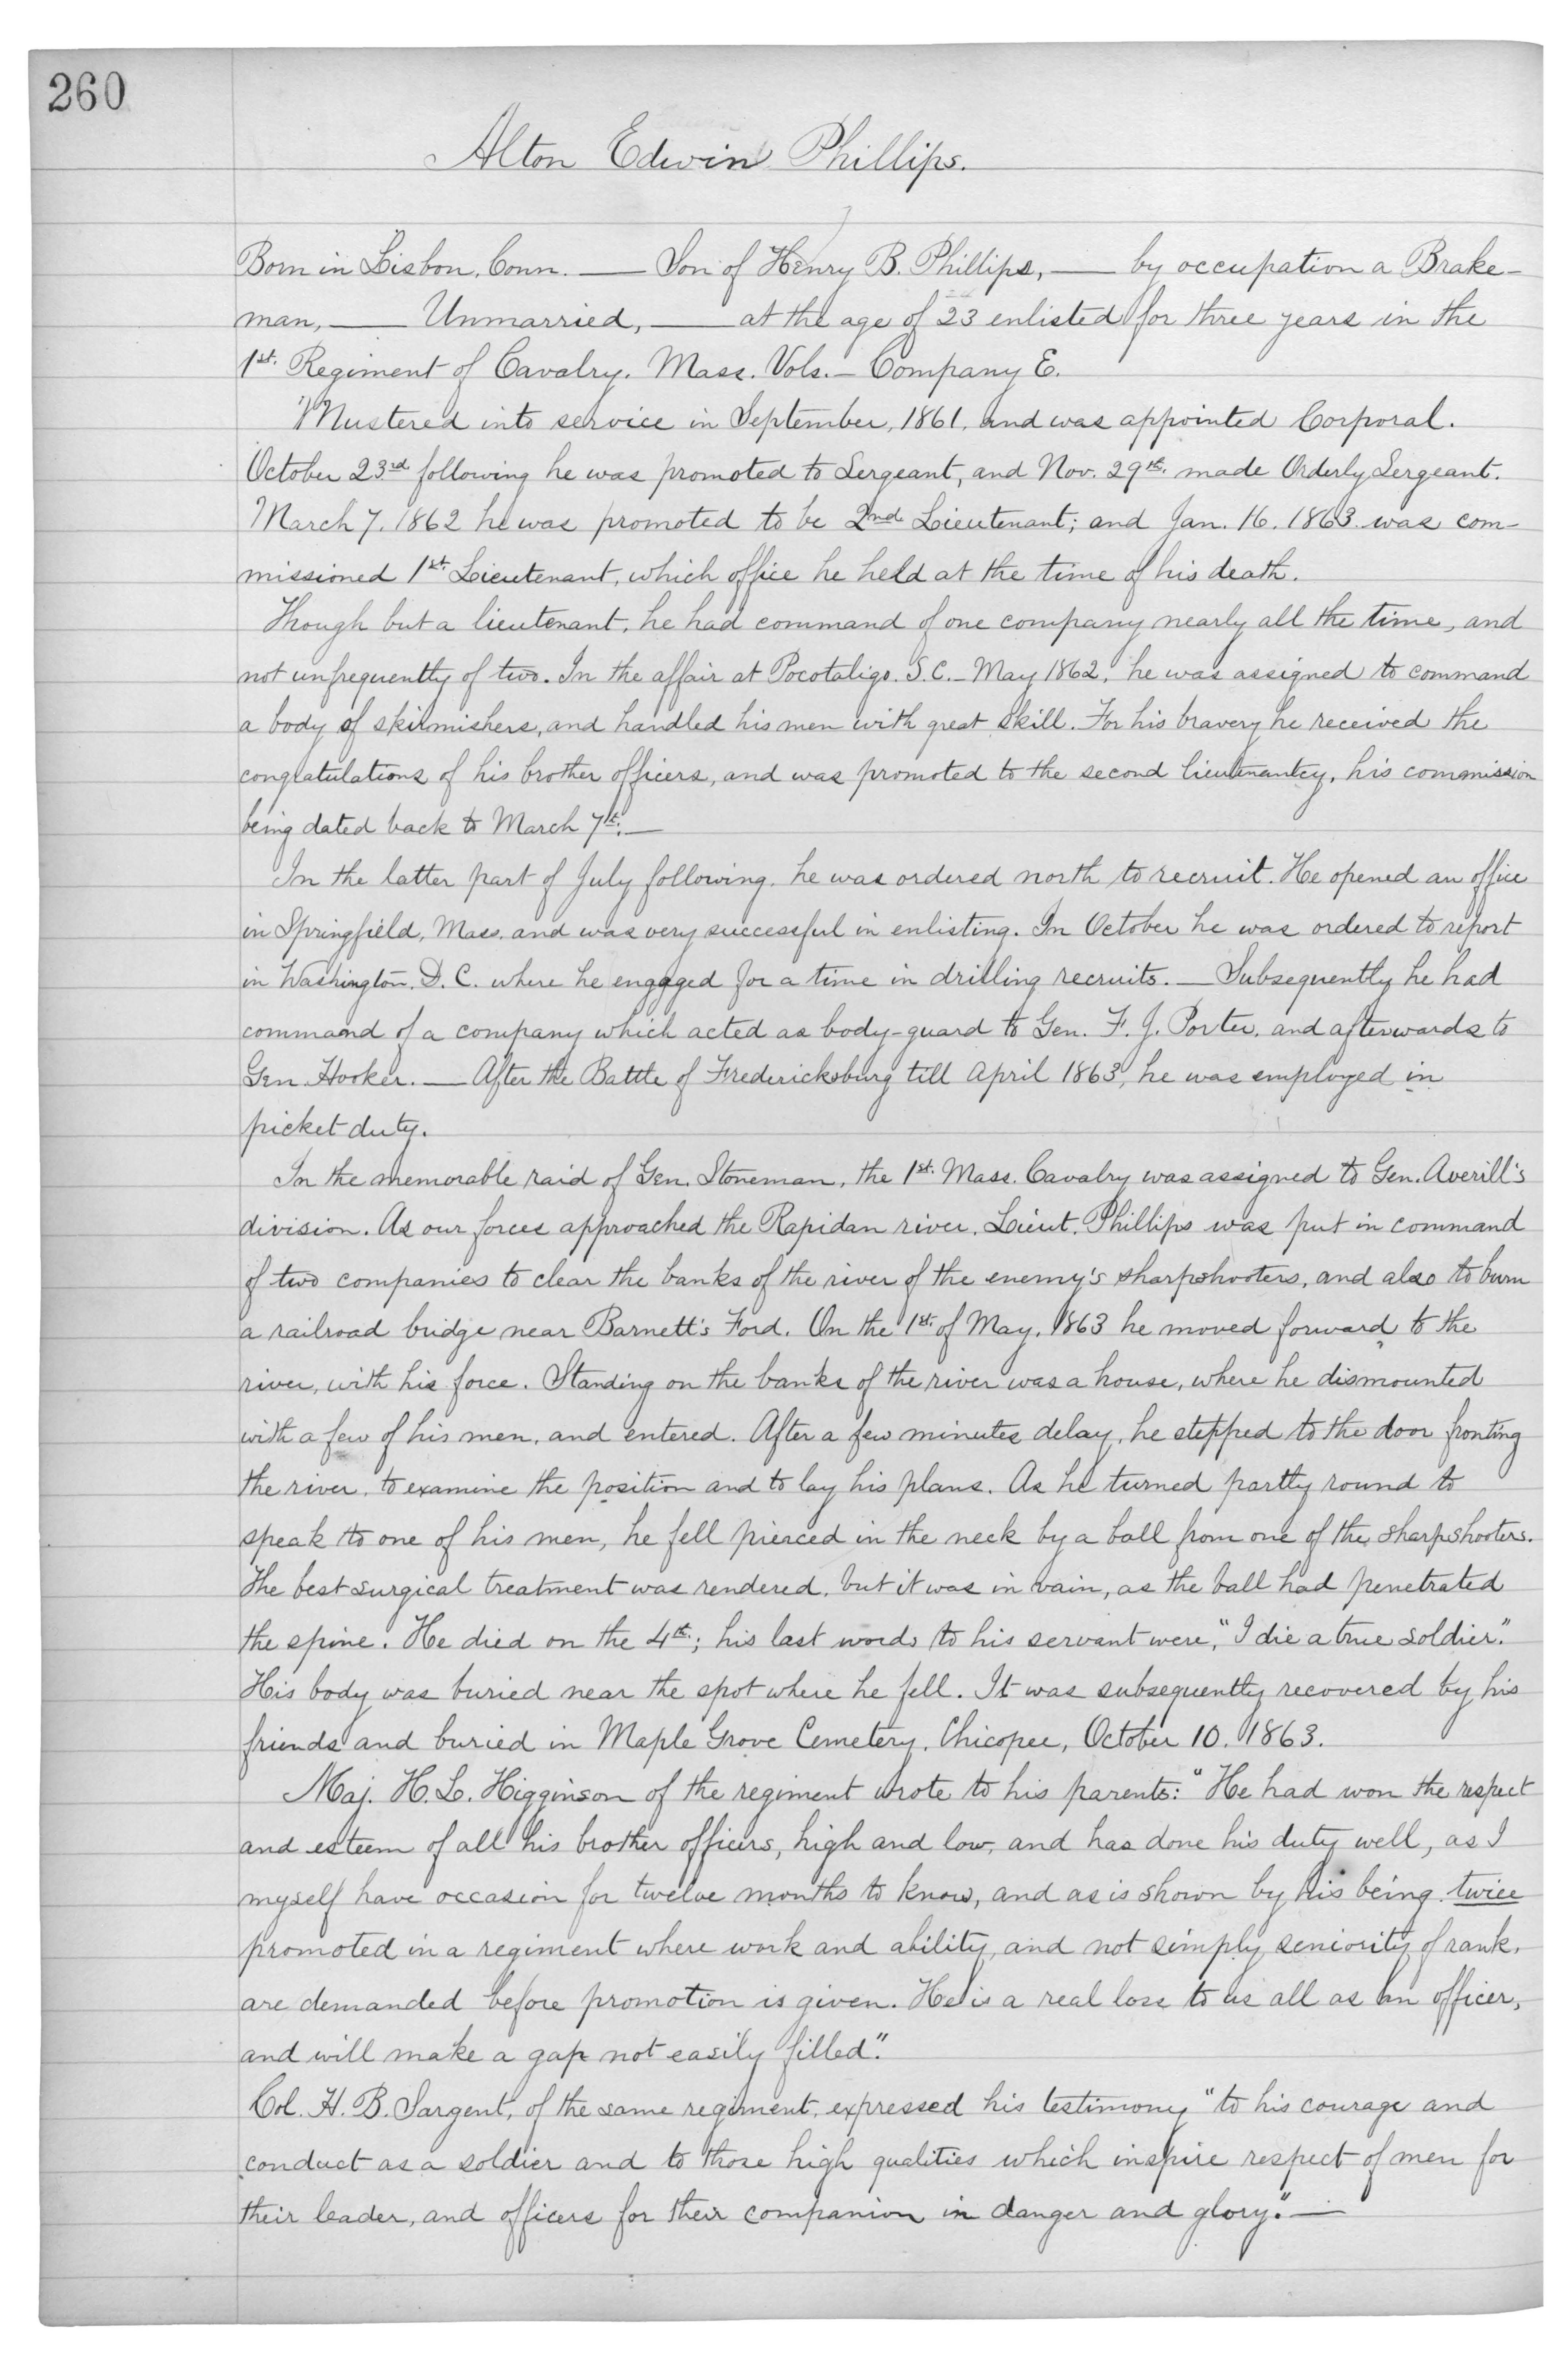 260
Alton Edwin Phillips.
Born in Lisbon, Conn. — Son of Henry B. Phillips, — by occupation a Brake-
man, — Unmarried, — at the age of 23 enlisted for three years in the
1st. Regiment of Cavalry. Mass. Vols. — Company E.
Mustered into service in September, 1861, and was appointed Corporal.
October 23rd following he was promoted to Sergeant, and Nov. 29th. made Orderly Sergeant.
March 7. 1862 he was promoted to be 2nd Lieutenant; and Jan. 16. 1863. was com-
missioned 1st. Lieutenant, which office he held at the time of his death.
Though but a lieutenant, he had command of one company nearly all the time, and
not unfrequently of two. In the affair at Pocotaligo. S.C. — May 1862, he was assigned to command
a body of skirmishers, and handled his men with great skill. For his bravery he received the
congratulations of his brother officers, and was promoted to the second lieutenantcy, his commission
being dated back to March 7th. —
In the latter part of July following, he was ordered north to recruit. He opened an office
in Springfield, Mass. and was very successful in enlisting. In October he was ordered to report
in Washington. D. C. where he engaged for a time in drilling recruits. — Subsequently he had
command of a company which acted as body-guard to Gen. F. J. Porter, and afterwards to
Gen. Hooker. — After the Battle of Fredericksburg till April 1863, he was employed in
picket duty.
In the memorable raid of Gen. Stoneman, the 1st. Mass. Cavalry was assigned to Gen. Averill's
division. As our forces approached the Rapidan river, Lieut. Phillips was put in command
of two companies to clear the banks of the river of the enemy's sharpshooters, and also to burn
a railroad bridge near Barnett's Ford. On the 1st. of May, 1863 he moved forward to the
river, with his force. Standing on the banks of the river was a house, where he dismounted
with a few of his men, and entered. After a few minutes delay, he stepped to the door fronting
the river, to examine the position and to lay his plans. As he turned partly round to
speak to one of his men, he fell pierced in the neck by a ball from one of the sharpshooters.
The best surgical treatment was rendered, but it was in vain, as the ball had penetrated
the spine. He died on the 4th.; his last words to his servant were, "I die a true soldier."
His body was buried near the spot where he fell. It was subsequently recovered by his
friends and buried in Maple Grove Cemetery, Chicopee, October 10. 1863.
Maj. H. L. Higginson of the regiment wrote to his parents: "He had won the respect
and esteem of all his brother officers, high and low, and has done his duty well, as I
myself have occasion for twelve months to know, and as is shown by his being twice
promoted in a regiment where work and ability, and not simply seniority of rank,
are demanded before promotion is given. He is a real loss to us all as an officer,
and will make a gap not easily filled."
Col. H. B. Sargent, of the same regiment, expressed his testimony "to his courage and
conduct as a soldier and to those high qualities which inspire respect of men for
their leader, and officers for their companion in danger and glory." —